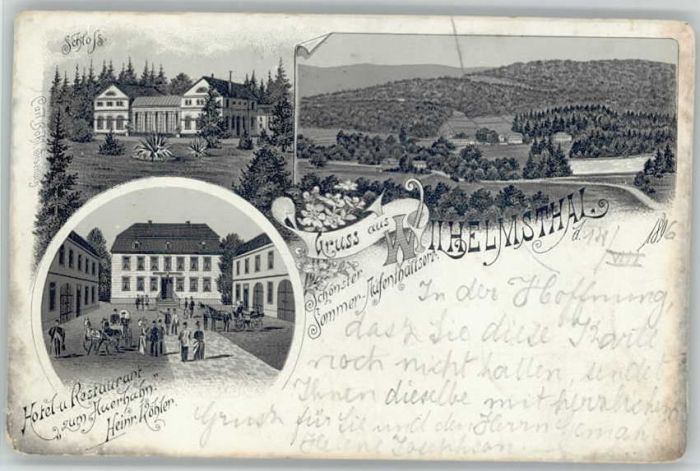 Schloß.
Gruss aus WILHELMSTHAL
Schönster
Sommer-Aufenthaltsort.
d. 18/VII 1896
Hotel u. Restaurant
"zum Auerhahn."
Heinr. Köhler.
In der Hoffnung,
dass Sie diese Karte
noch nicht haben sendet
Ihnen dieselbe mit herzlichem
Gruss für Sie und den Herrn Gemahl
Helene Josephson.